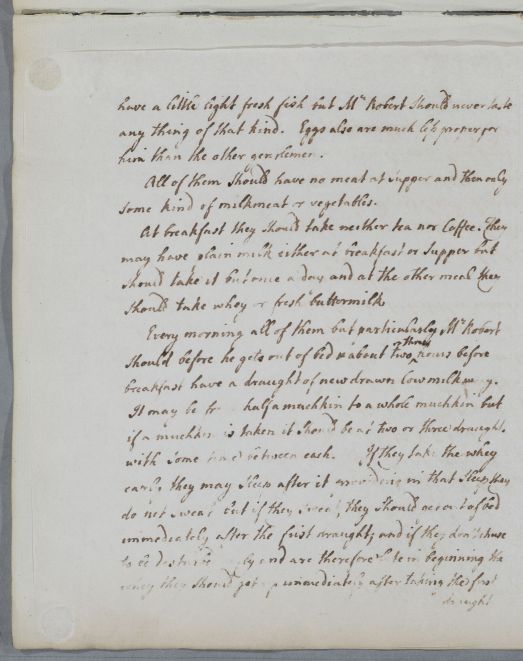 have a little light fresh fish but Mr Robert should never taste
any thing of that kind. Eggs also are much less proper for
him than the other gentlemen.
All of them should have no meat at supper and then only
some kind of milkmeat or vegetables.
At breakfast they should take neither tea nor Coffee. They
may have plain milk either at breakfast or Supper but
should take it but once a day and at the other meal they
should take whey or fresh buttermilk
Every morning all of them but particularly Mr Robert
should before he gets out of bed about two or three hours before
breakfast have a draught of new drawn Cow milk
It may be half a muchkin to a whole muchkin but
if a muchkin is taken it should be at two or three draughts
with some time between each. If they take the whey
early they may sleep after it in that sleep they
do not sweat but if they sweat, they should get out of bed
immediately after the first draught, and if they don't chuse
to be and are therefore late in beginning the
whey they should get up immediately after taking the first
draught